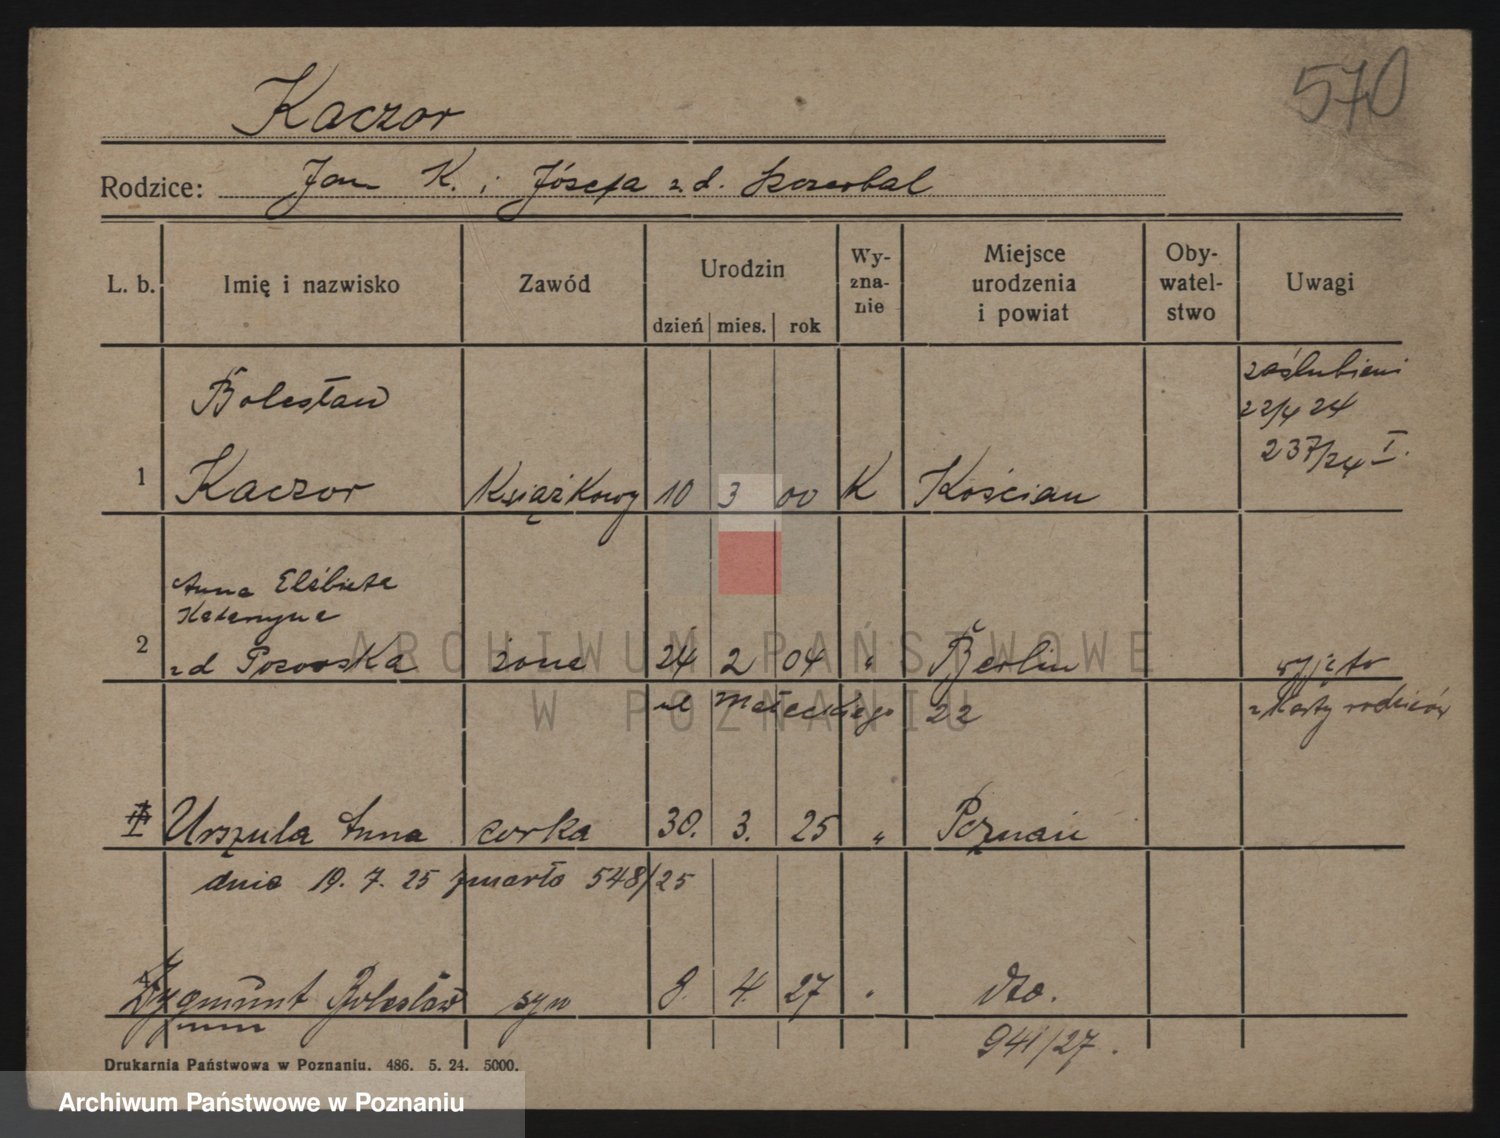 570
Kaczor
Rodzice: Jan K. i Józefa z d. Szczerbal
L. b. Imię i nazwisko Zawód Urodzin dzień mies. rok Wy-zna-nie Miejsce urodzenia i powiat Oby-watel-stwo Uwagi
Bolesław zaślubieni
22/4 24
237/24 I.
1 Kaczor Książkowy 10 3 00 K Kościan
Anna Elżbieta
Katarzyna
2 z d żona 24 2 04 " Berlin wyjęto
ul Małeckiego 22 z Karty rodziców
Urszula Anna corka 30. 3. 25 " Poznań
dnia 19. 7. 25 zmarła 548/25
Zygmunt Bolesław syn 8. 4. 27 " dto.
941/27.
Drukarnia Państwowa w Poznaniu. 486. 5. 24. 5000.
ARCHIWUM PAŃSTWOWE
W POZNANIU
Archiwum Państwowe w Poznaniu